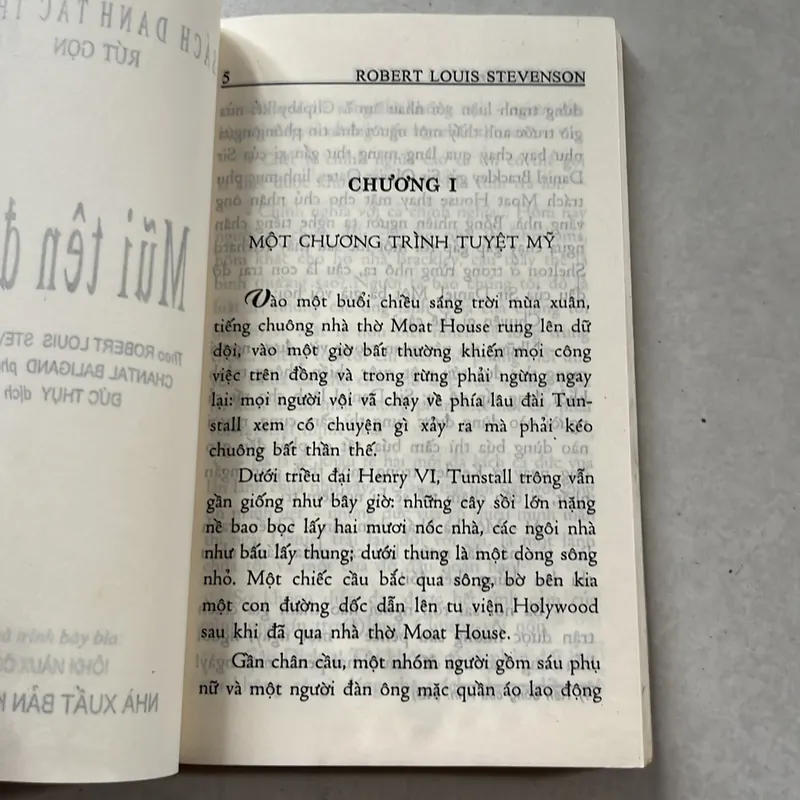 SÁCH DANH TÁC
RÚT GỌN
Mũi tên
Theo ROBERT LOUIS
CHANTAL BALIGAND
ĐỨC THỤY dịch
trình bày bìa
NHÀ XUẤT BẢN
5 ROBERT LOUIS STEVENSON
CHƯƠNG I
MỘT CHƯƠNG TRÌNH TUYỆT MỸ
Vào một buổi chiều sáng trời mùa xuân,
tiếng chuông nhà thờ Moat House rung lên dữ
dội, vào một giờ bất thường khiến mọi công
việc trên đồng và trong rừng phải ngừng ngay
lại: mọi người vội vã chạy về phía lâu đài Tun-
stall xem có chuyện gì xảy ra mà phải kéo
chuông bất thần thế.
Dưới triều đại Henry VI, Tunstall trông vẫn
gần giống như bây giờ: những cây sồi lớn nặng
nề bao bọc lấy hai mươi nóc nhà, các ngôi nhà
như bấu lấy thung; dưới thung là một dòng sông
nhỏ. Một chiếc cầu bắc qua sông, bờ bên kia
một con đường dốc dẫn lên tu viện Holywood
sau khi đã qua nhà thờ Moat House.
Gần chân cầu, một nhóm người gồm sáu phụ
nữ và một người đàn ông mặc quần áo lao động